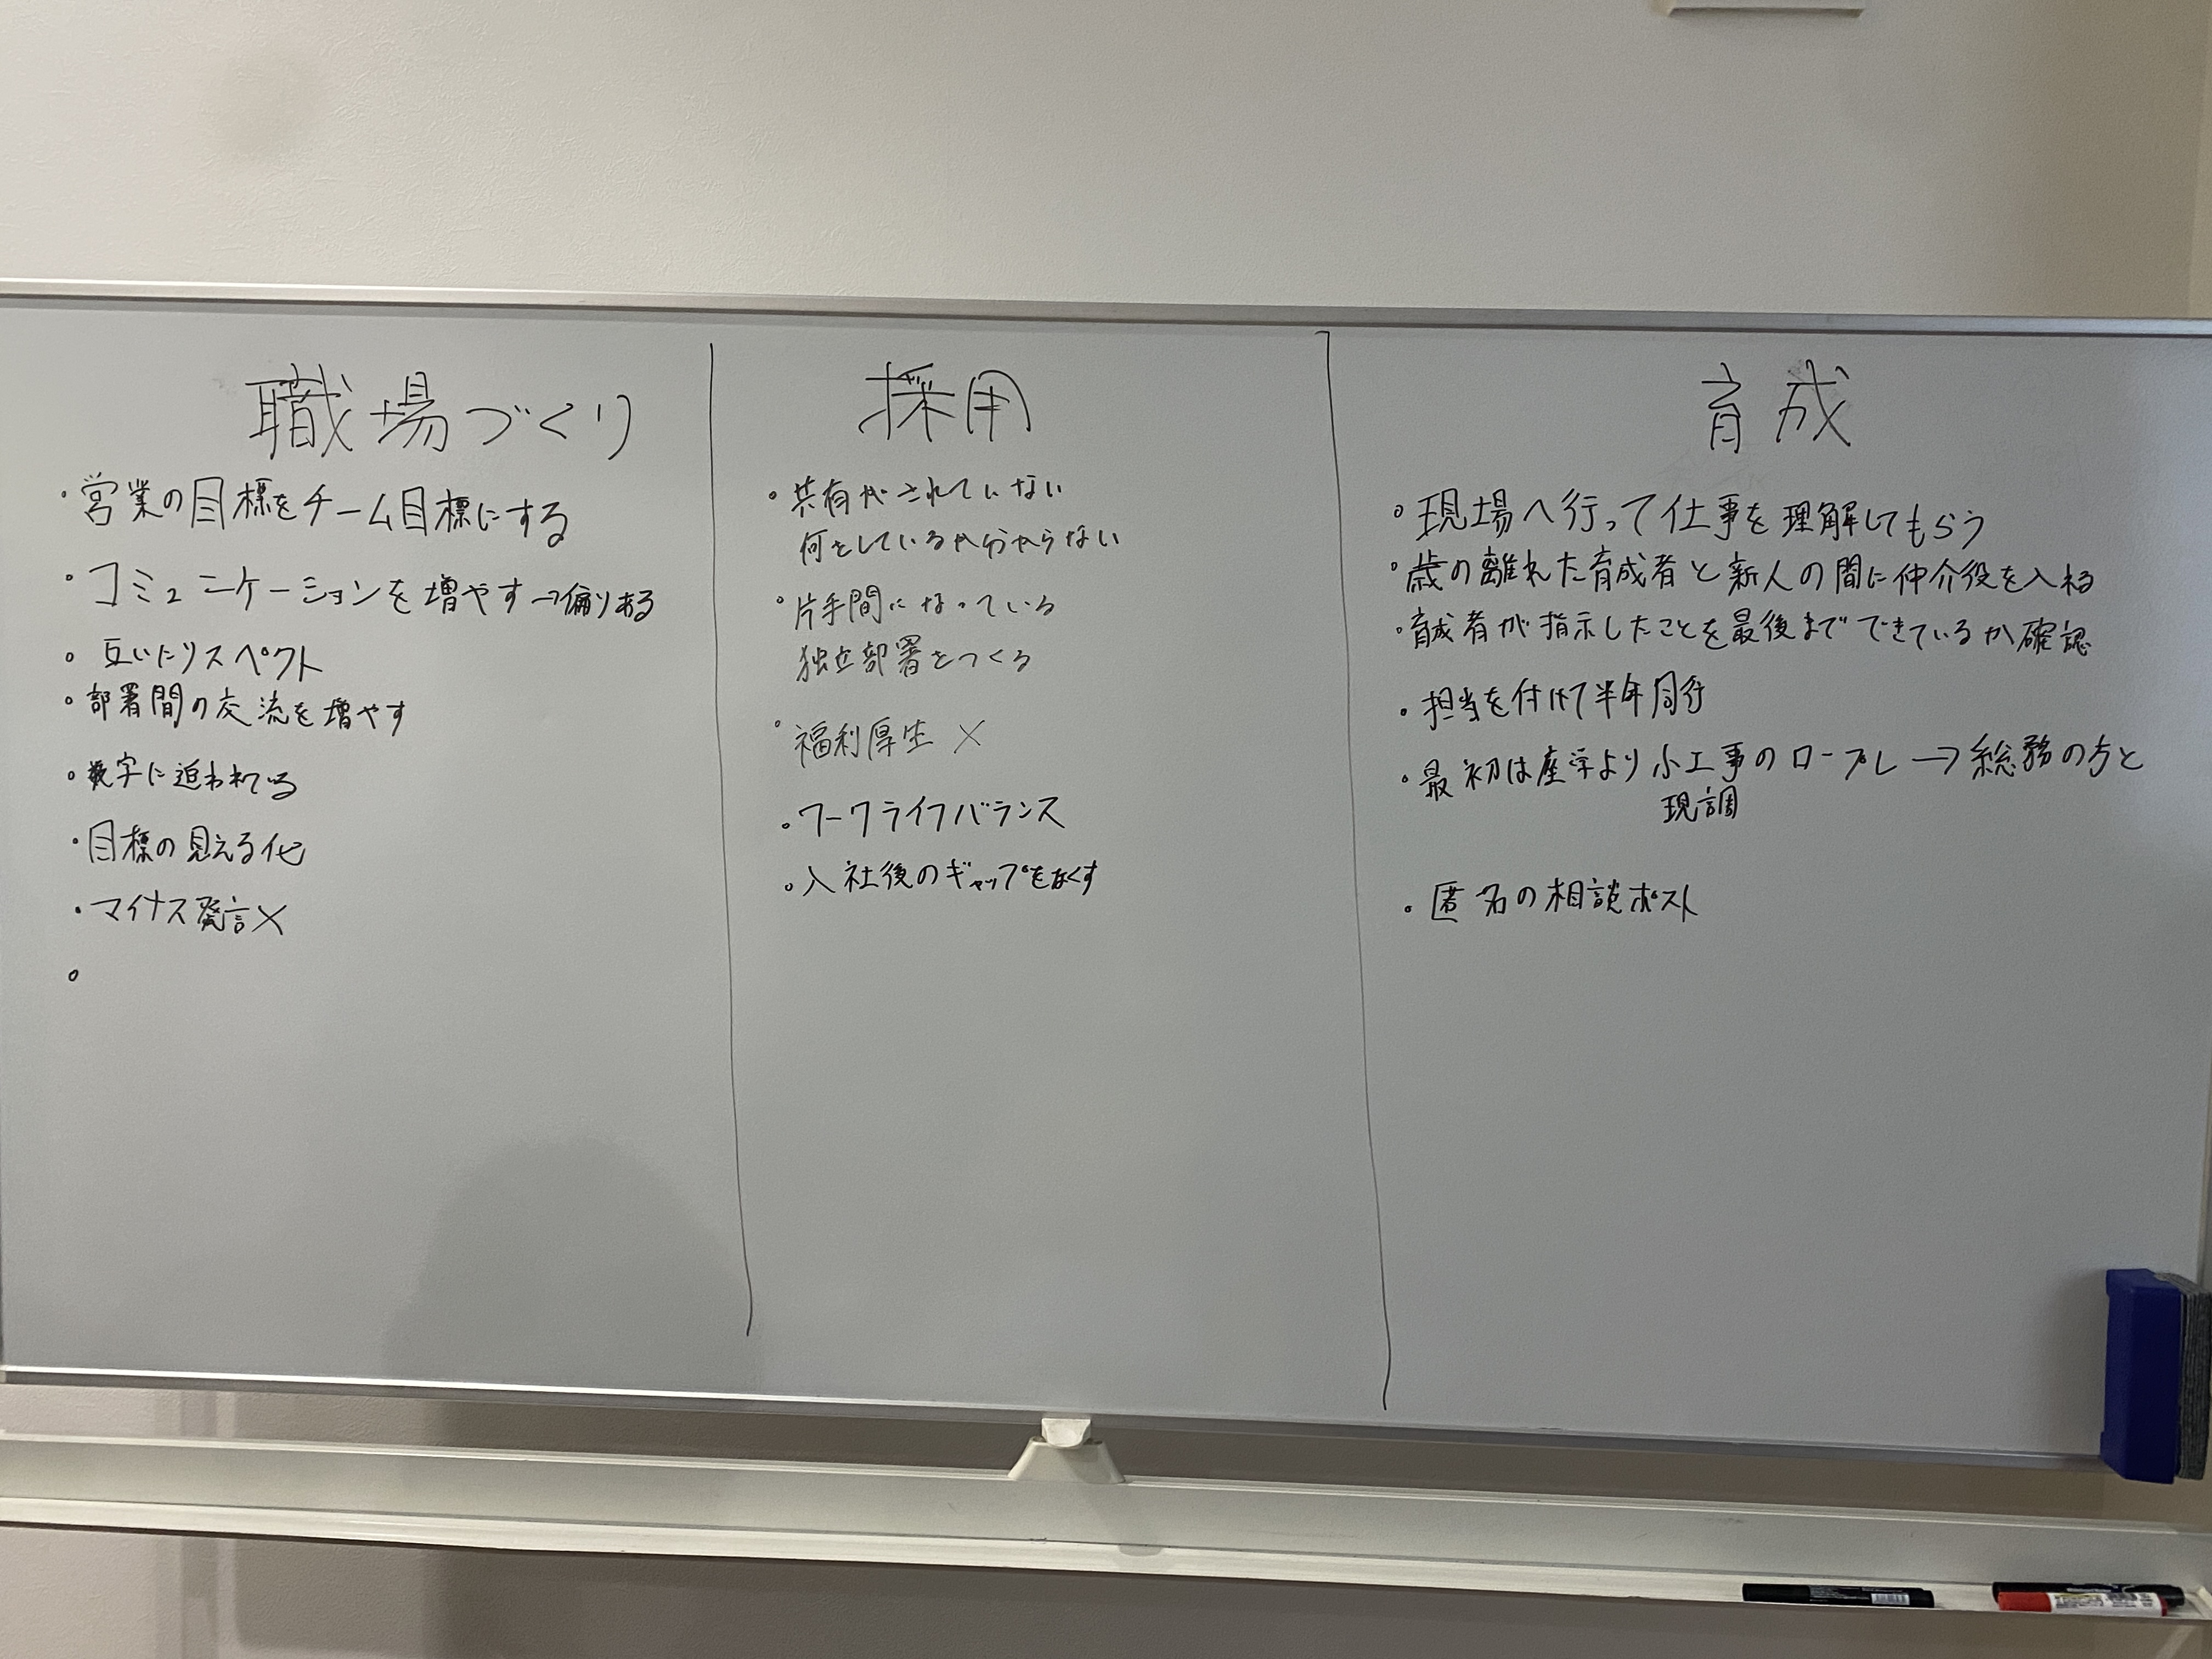 職場づくり
・営業の目標をチーム目標にする
・コミュニケーションを増やす→偏りある
・互いにリスペクト
・部署間の交流を増やす
・数字に追われている
・目標の見える化
・マイナス発言×
・
採用
・共有がされていない
何をしているか分からない
・片手間になっている
独立部署をつくる
・福利厚生 ×
・ワークライフバランス
・入社後のギャップをなくす
育成
・現場へ行って仕事を理解してもらう
・歳の離れた育成者と新人の間に仲介役を入れる
・育成者が指示したことを最後までできているか確認
・担当を付けて半年同行
・最初は座学より小工事のロープレ→総務の方と
現調
・匿名の相談ポスト